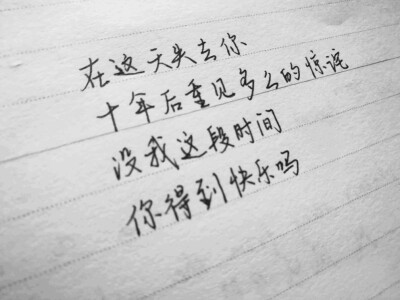 在这天失去你
十年后重见多么的惊诧
没我这段时间
你得到快乐吗